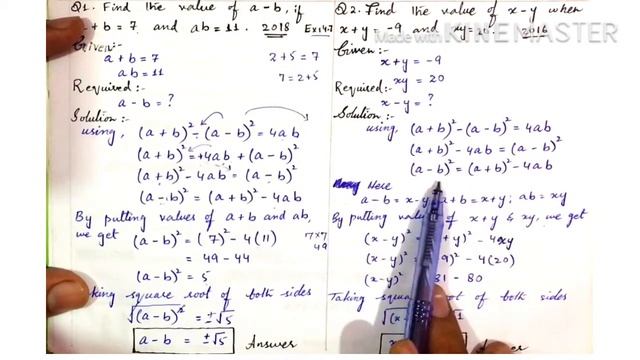 Q1. Find the value of a-b, if
+ b = 7 and ab = 11. 2018 Ex 14.7
Given:-
a + b = 7
2 + 5 = 7
ab = 11
7 = 2 + 5
Required:-
a - b = ?
Solution:-
using, (a + b)² - (a - b)² = 4ab
(a + b)² = +4ab + (a - b)²
(a + b)² - 4ab = (a - b)²
(a - b)² = (a + b)² - 4ab
By putting values of a + b and ab,
we get (a - b)² = (7)² - 4(11)
7x7
49
= 49 - 44
(a - b)² = 5
king square root of both sides
√(a - b)² = ±√5
a - b = ±√5 Answer
Q2. Find the value of x-y when
x + y = -9 and xy = 20. 2016
Made with KINEMASTER
Given:-
x + y = -9
xy = 20
Required:-
x - y = ?
Solution:-
using, (a + b)² - (a - b)² = 4ab
(a + b)² - 4ab = (a - b)²
(a - b)² = (a + b)² - 4ab
Here
a - b = x - y a + b = x + y ; ab = xy
By putting value of x + y & xy, we get
(x - y)² + y)² - 4xy
(x - y)² 9)² - 4(20)
(x - y)² 81 - 80
Taking squ root of both sides
√(x 1